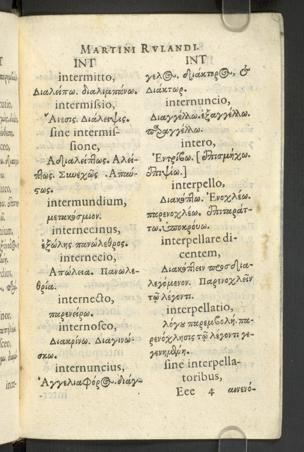 MARTINI RVLANDI.
INT
intermitto,
Διαλείπω. διαλιμπάνω.
intermissio,
Ἄνεσις. Διάλειψις.
sine intermis-
sione,
Ἀδιαλείπτως. Ἀλεί-
πτως. Συνεχῶς. Ἀπαύ-
στως.
intermundium,
μετακόσμιον.
internecinus,
ἐξώλης. πανώλεθρος.
internecio,
Ἀπώλεια. Πανωλε-
θρία.
internecto,
παρενείρω.
internosco,
Διακρίνω. Διαγινώ-
σκω.
internuncius,
Ἀγγελιαφόρος. διάγ-
INT
γελος, διάκτορος, &
Διάκτωρ.
internuncio,
Διαγγέλλω. ἐξαγγέλλω.
παραγγέλλω.
intero,
Ἐντρίβω. [ἐπισμήχω.
ἐπιψάω.]
interpello,
Διακόπτω. Ἐνοχλέω.
παρενοχλέω. ἐπιταράτ-
τω. ὑποκρούω.
interpellare di-
centem,
Διακόπτειν προσδια-
λεγόμενον. Παρενοχλεῖν
τῷ λέγοντι.
interpellatio,
λόγου παρεμβολὴ. πα-
ρενόχλησις τῷ λέγοντι γε-
γενημένη.
sine interpella-
toribus,
Eee 4
ἀνενό-